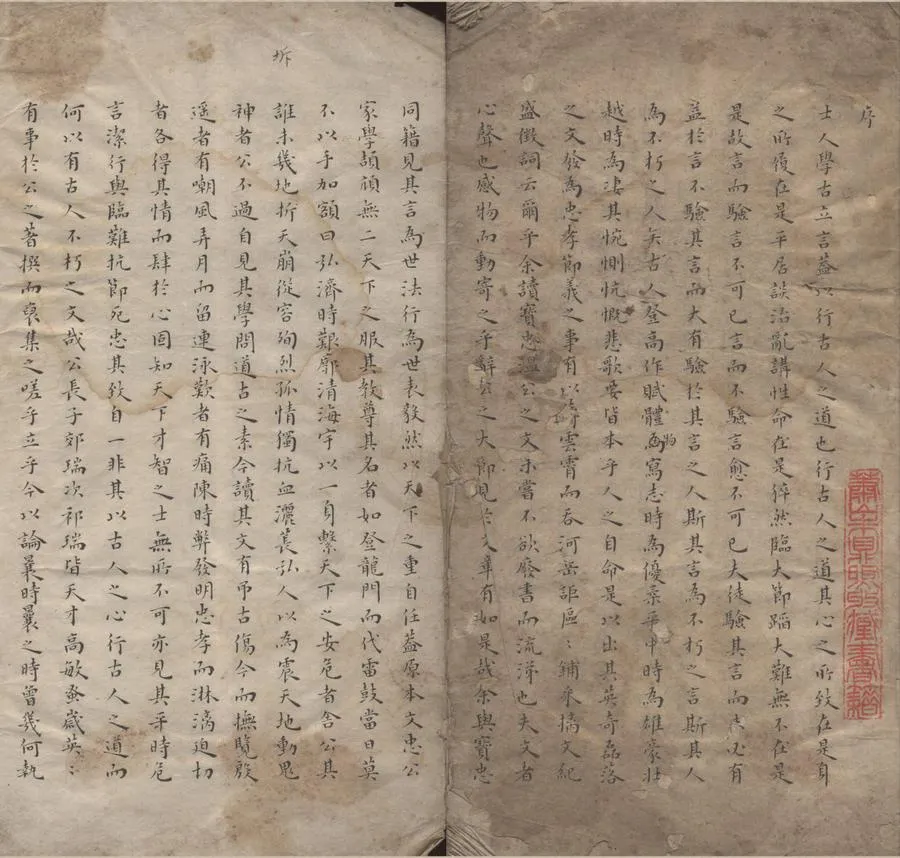 序
士人學古立言葢以行古人之道也行古人之道其心之所致在是身
之所履在是平居談治亂講性命在是猝然臨大節蹈大難無不在是
是故言而驗言不可已言而不驗言愈不可已夫徒驗其言而未必有
益於言不驗其言而大有驗於其言之人斯其言為不朽之言斯其人
為不朽之人矣古人登高作賦體物寫志時為優柔平中時為雄豪壯
越時為淒其惋惻忼慨悲歌要皆本乎人之自命是以出其英奇磊落
之文發為忠孝節義之事有以歭雲霄而吞河岳詎區〻鋪采摛文紀
盛徵詞云爾乎余讀寶忠溫公之文未嘗不欲廢書而流涕也夫文者
心聲也感物而動寄之乎辭公之大節見於文章有如是哉余與寶忠
坼
同籍見其言為世法行為世表發然以天下之重自任葢原本文忠公
家學頡頏無二天下之服其教尊其名者如登龍門而代雷鼓當日莫
不以手加額曰弘濟時艱廓清海宇以一身繫天下之安危者舍公其
誰未幾地折天崩從容殉烈孤情獨抗血灑萇弘人以為震天地動鬼
神者公不過自見其學問道古之素今讀其文有弔古傷今而撫覽殷
遥者有嘲風弄月而留連泳歎者有痛陳時弊發明忠孝而淋漓迫切
者各得其情而肆於心固知天下才智之士無所不可亦見其平時危
言潔行與臨難抗節死忠其致自一非其以古人之心行古人之道而
何以有古人不朽之文哉公長子郊瑞次祁瑞皆天才高敏蚤歲英〻
有事於公之著撰而裒集之嗟乎立乎今以論曩時曩之時曾幾何執